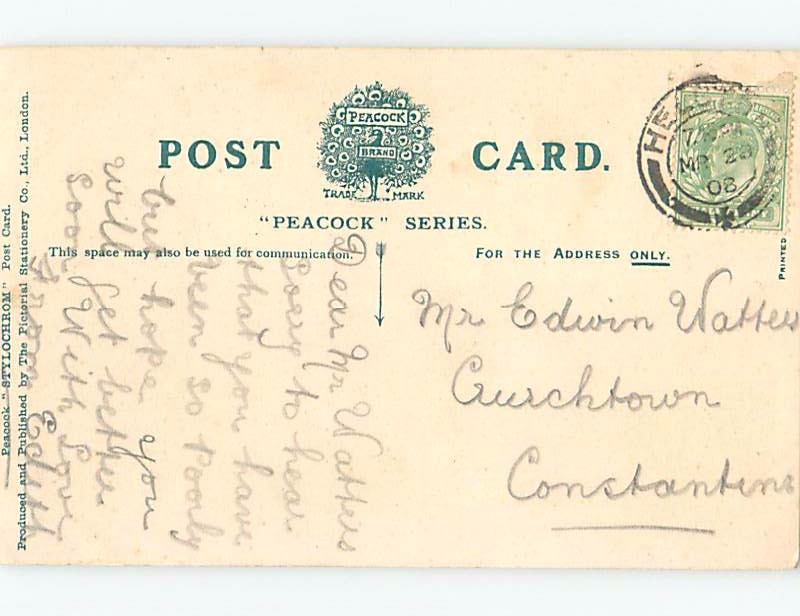 POST CARD.
PEACOCK
BRAND
TRADE MARK
"PEACOCK" SERIES.
This space may also be used for communication.
FOR THE ADDRESS ONLY.
Peacock "STYLOCHROM" Post Card.
Produced and Published by The Pictorial Stationery Co., Ltd., London.
PRINTED
HE
MR 29
08
Dear Mr Watters
Sorry to hear
that you have
been so poorly
but hope you
will get better
soon. With Love
From Edith
Mr Edwin Watters
Curchtown
Constantine